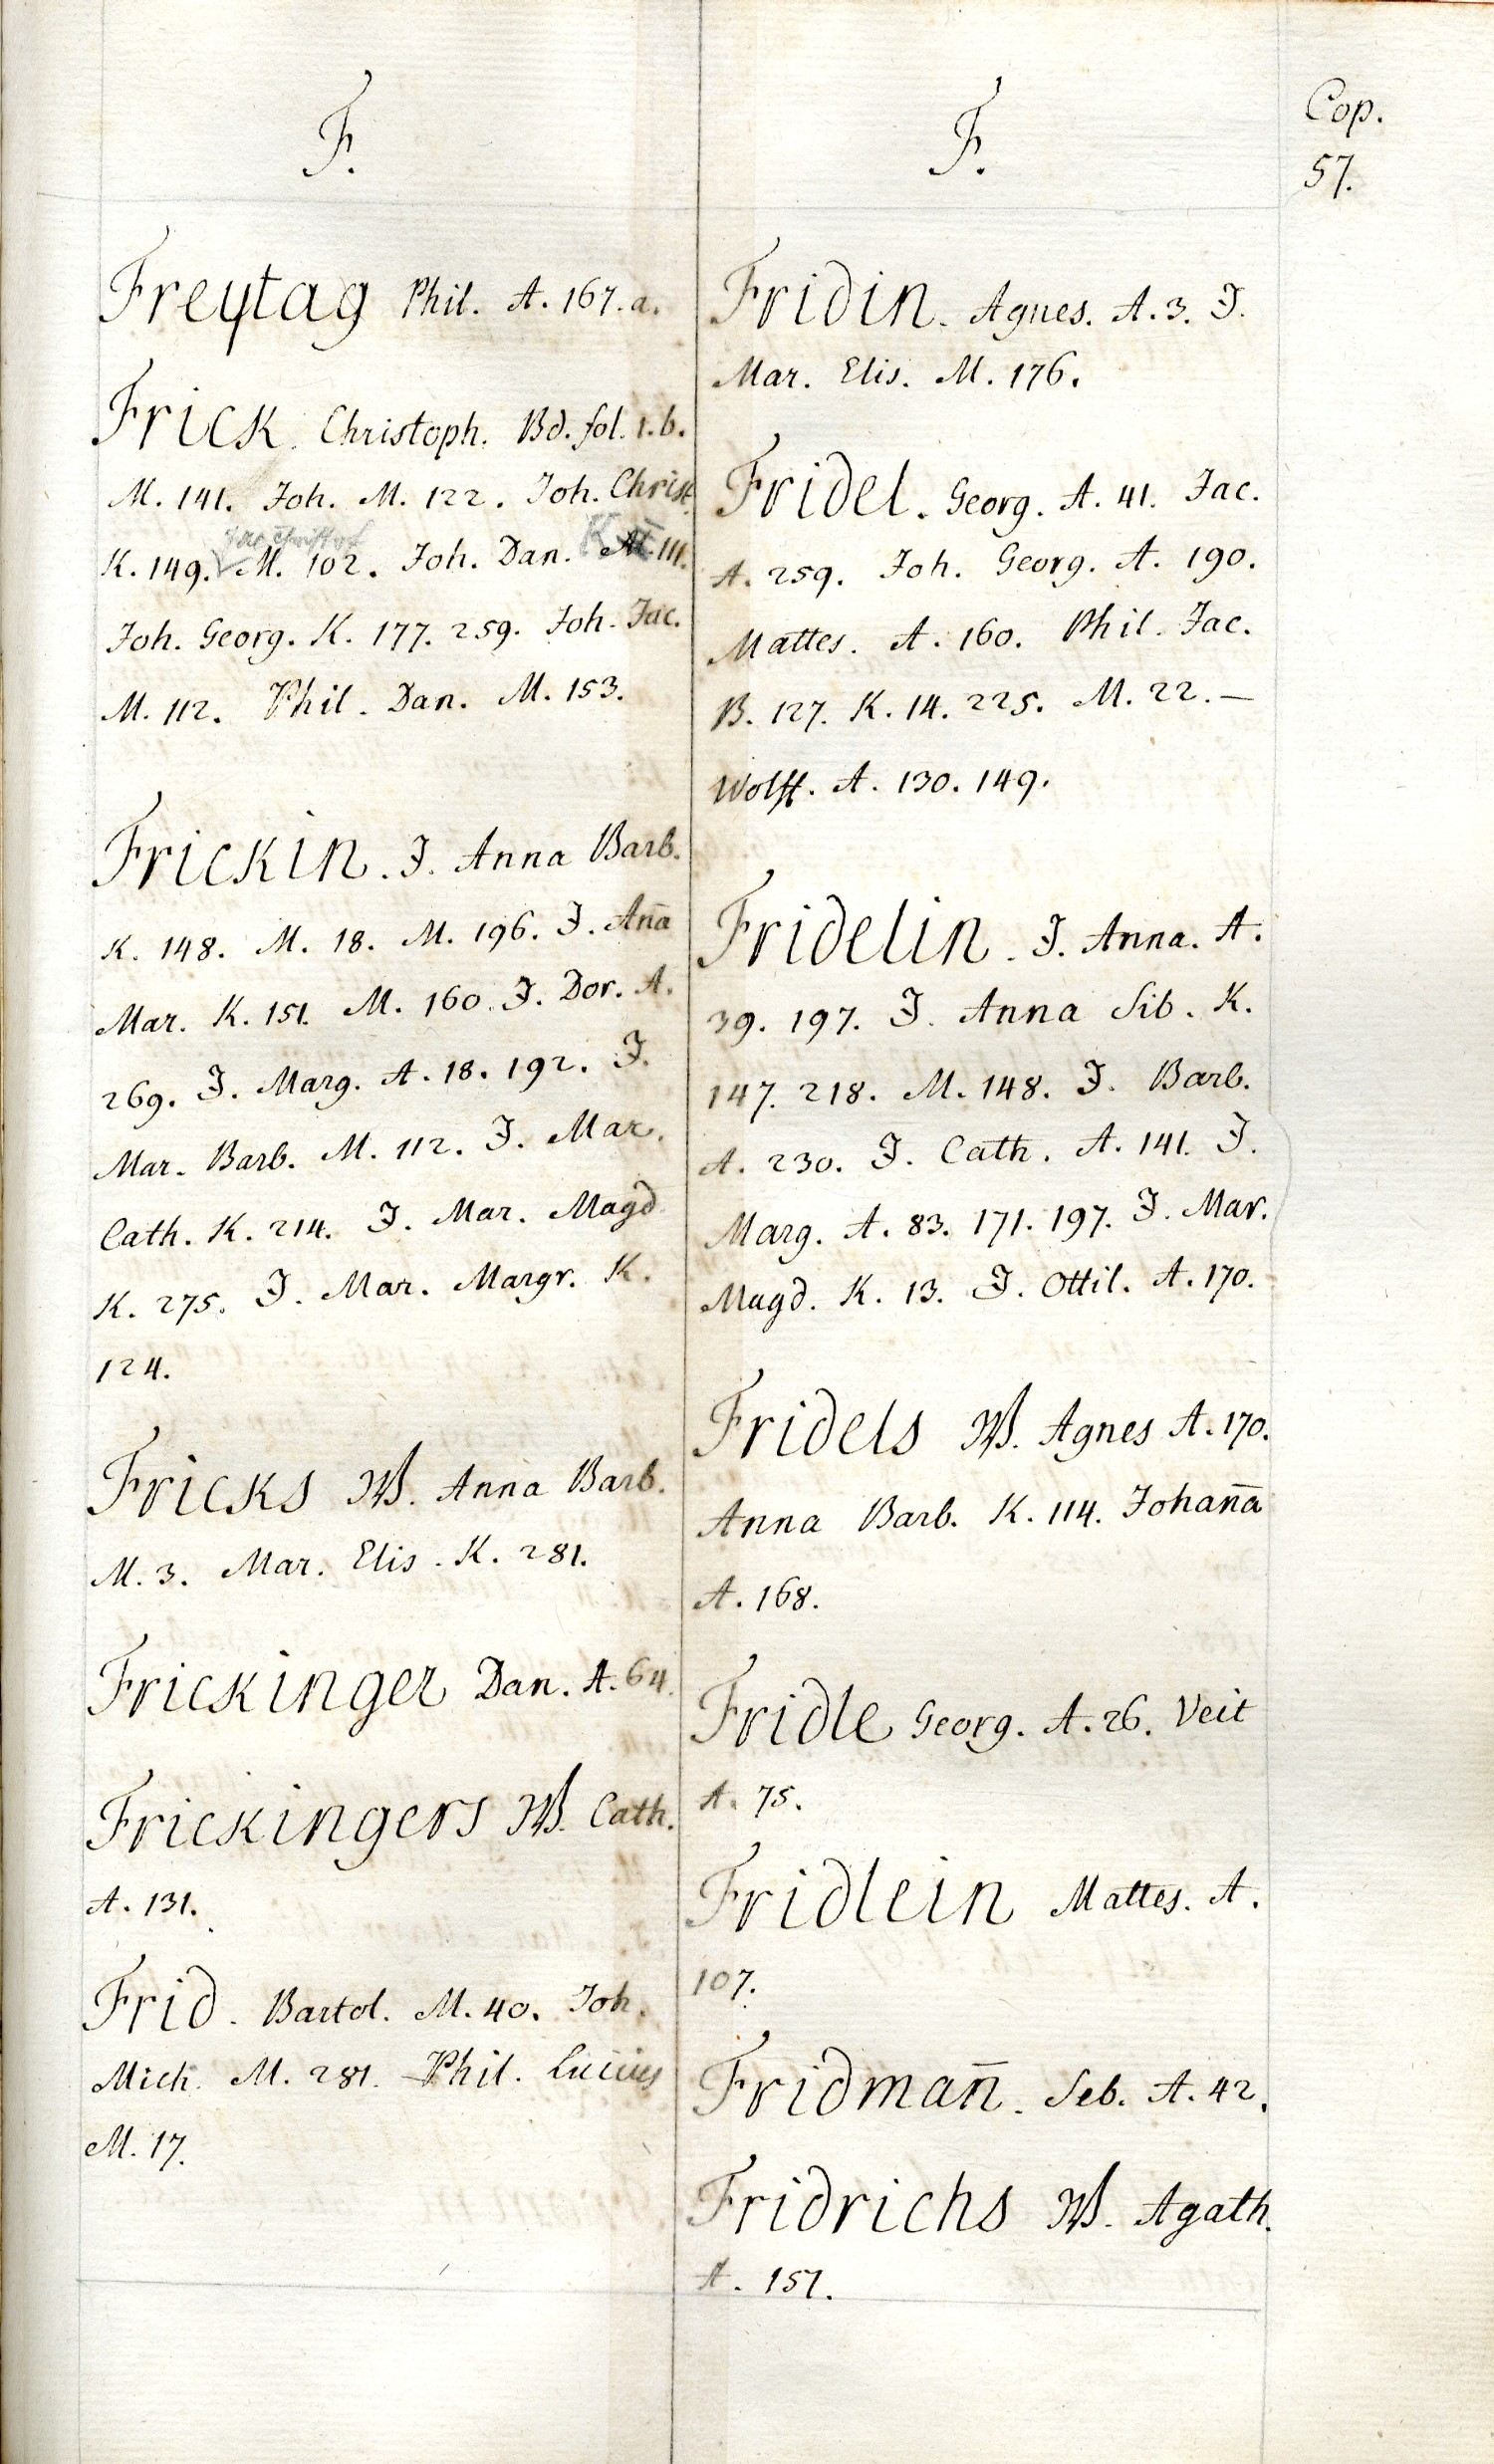 F.
Freytag Phil. A. 167. a.
Frick. Christoph. Bd. fol. 1. b.
M. 141. Joh. M. 122. Joh. Christ.
K. 149. M. 102. Joh. Dan. K 111.
Joh. Georg. K. 177. 259. Joh. Jac.
M. 112. Phil. Dan. M. 153.
Frickin. J. Anna Barb.
K. 148. M. 18. M. 196. J. Aña
Mar. K. 151. M. 160. J. Dor. A.
269. J. Marg. A. 18. 192. J.
Mar. Barb. M. 112. J. Mar.
Cath. K. 214. J. Mar. Magd.
K. 275. J. Mar. Margr. K.
124.
Fricks W. Anna Barb.
M. 3. Mar. Elis. K. 281.
Frickinger Dan. A. 64.
Frickingers W. Cath.
A. 131.
Frid. Bartol. M. 40. Joh.
Mich. M. 281. Phil.
M. 17.
F.
Fridin. Agnes. A. 3. J.
Mar. Elis. M. 176.
Fridel. Georg. A. 41. Jac.
A. 259. Joh. Georg. A. 190.
Mattes. A. 160. Phil. Jac.
B. 127. K. 14. 225. M. 22. —
Wolff. A. 130. 149.
Fridelin. J. Anna. A.
39. 197. J. Anna Sib. K.
147. 218. M. 148. J. Barb.
A. 230. J. Cath. A. 141. J.
Marg. A. 83. 171. 197. J. Mar.
Magd. K. 13. J. Ottil. A. 170.
Fridels W. Agnes A. 170.
Anna Barb. K. 114. Johaña
A. 168.
Fridle Georg. A. 26. Veit
A. 75.
Fridlein Mattes. A.
107.
Fridmañ. Seb. A. 42.
Fridrichs W. Agath.
A. 157.
Cop.
57.